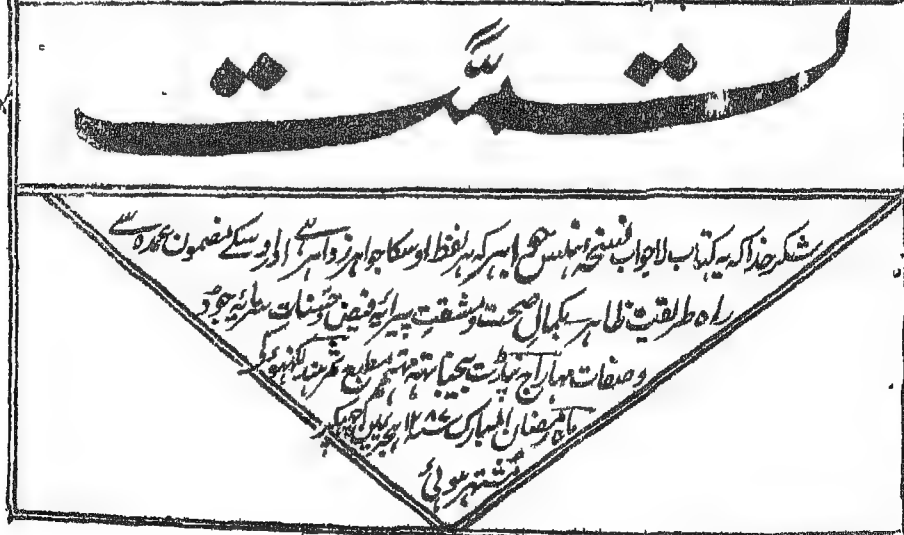 تمّت
شکر خدا کہ یہ کتاب لاجواب نسخہ انیس ہے کہ ہر لفظ اوسکا جواہر زواہر ہے اور اوسکے مضمون عمدہ سے
راہ طریقت ظاہر بکمال صحت و مشقت پیرائہ فیض و حسنات سرمایہ جود
و صفات مہاراج پنڈت بیجناتھ مہتمم مطبع ثمر ہند لکھنؤ
ماہ رمضان المبارک ۱۲۸۷ ہجری
مشتہر ہوئی